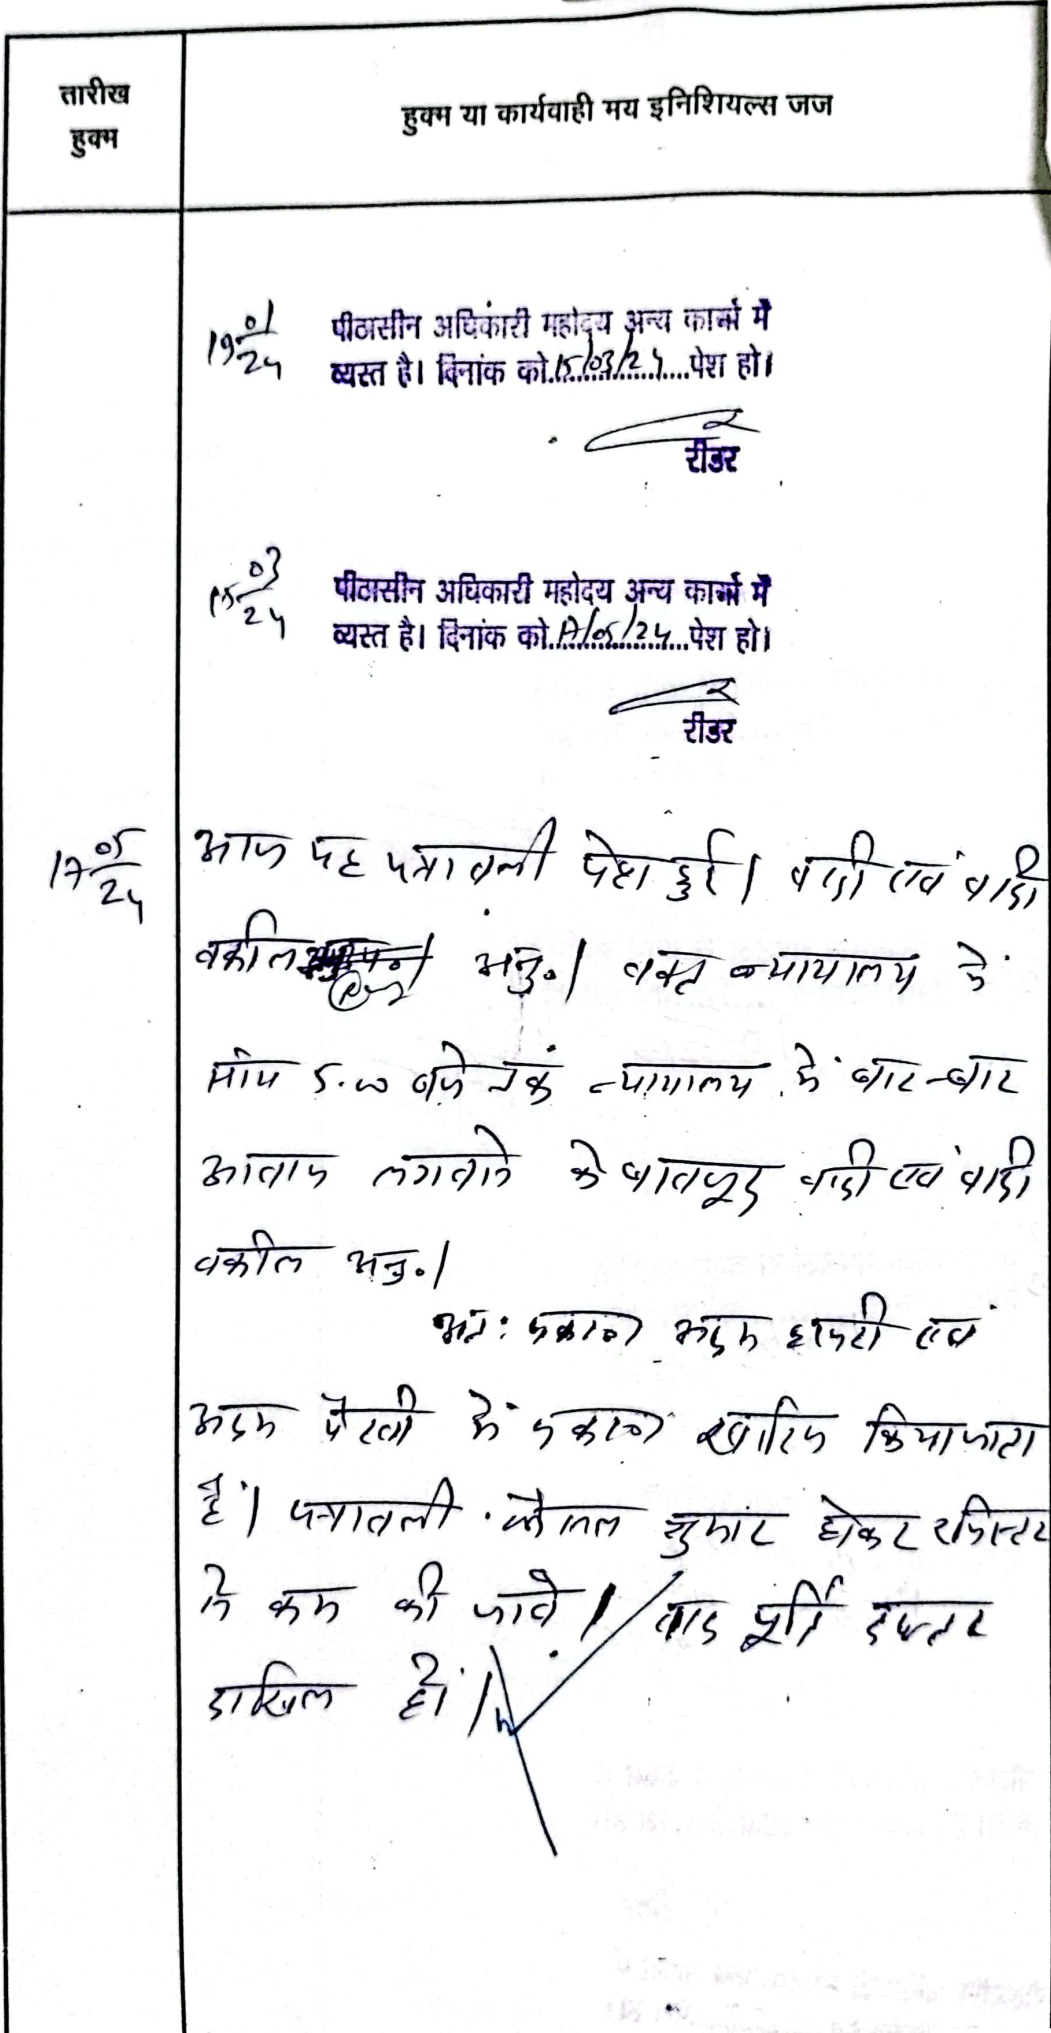 तारीख
हुक्म
हुक्म या कार्यवाही मय इनिशियल्स जज
19 01/24
पीठासीन अधिकारी महोदय अन्य कार्यो में
व्यस्त है। दिनांक को 15/03/24 पेश हो।
रीडर
15 03/24
पीठासीन अधिकारी महोदय अन्य कार्यो में
व्यस्त है। दिनांक को 17/05/24 पेश हो।
रीडर
17 05/24
आज यह पत्रावली पेश हुई। वादी एवं वादी
वकील अनु०। वक्त न्यायालय में
सांय 5.00 बजे तक न्यायालय में बार-बार
आवाज लगवाने के बावजूद वादी एवं वादी
वकील अनु०।
अतः प्रकरण अदम हाजरी एवं
अदम पैरवी में प्रकरण खारिज किया जाता
है। पत्रावली फैसल शुमार होकर रजिस्टर
से कम की जावे। बाद पूर्ति दफ्तर
दाखिल हो।